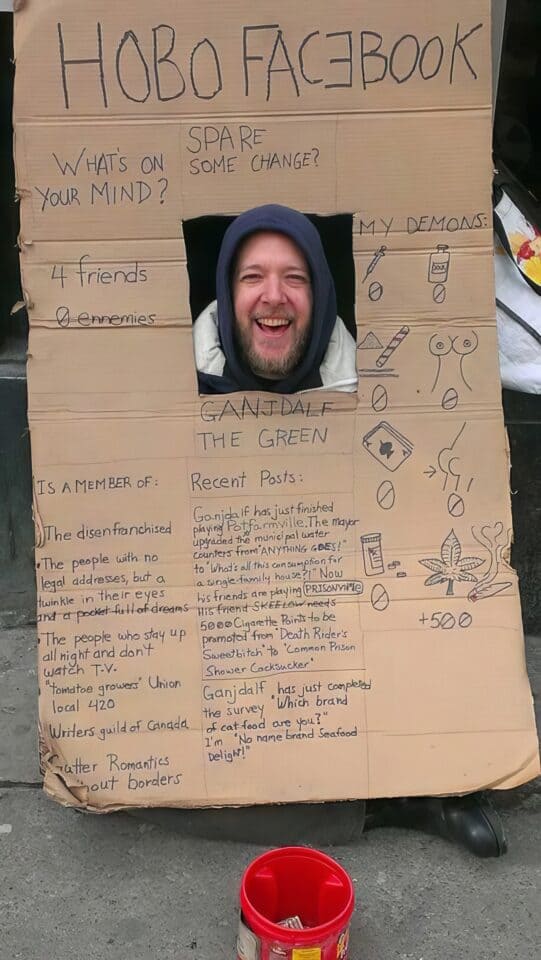 HOBO FACEBOOK
WHAT'S ON
YOUR MIND?
SPARE
SOME CHANGE?
4 friends
0 ennemies
MY DEMONS:
0
0
0
0
0
0
0
+500
GANJDALF
THE GREEN
IS A MEMBER OF:
The disenfranchised
• The people with no
legal addresses, but a
twinkle in their eyes
and a pocket full of dreams
• The people who stay up
all night and don't
watch T.V.
• "tomatoe growers" Union
local 420
Writers guild of Canada
Romantics
borders
Recent Posts:
Ganjdalf has just finished
playing Potfarmville. The mayor
upgraded the municipal water
counters from "ANYTHING GOES!"
to "What's all this consumption for
a single-family house?!" Now
his friends are playing PRISONVILLE
His friend needs
5000 Cigarette Points to be
promoted from "Death Rider's
Sweetbitch" to "Common Prison
Shower Cocksucker"
Ganjdalf has just completed
the survey "Which brand
of cat food are you?"
I'm "No name brand Seafood
Delight!"